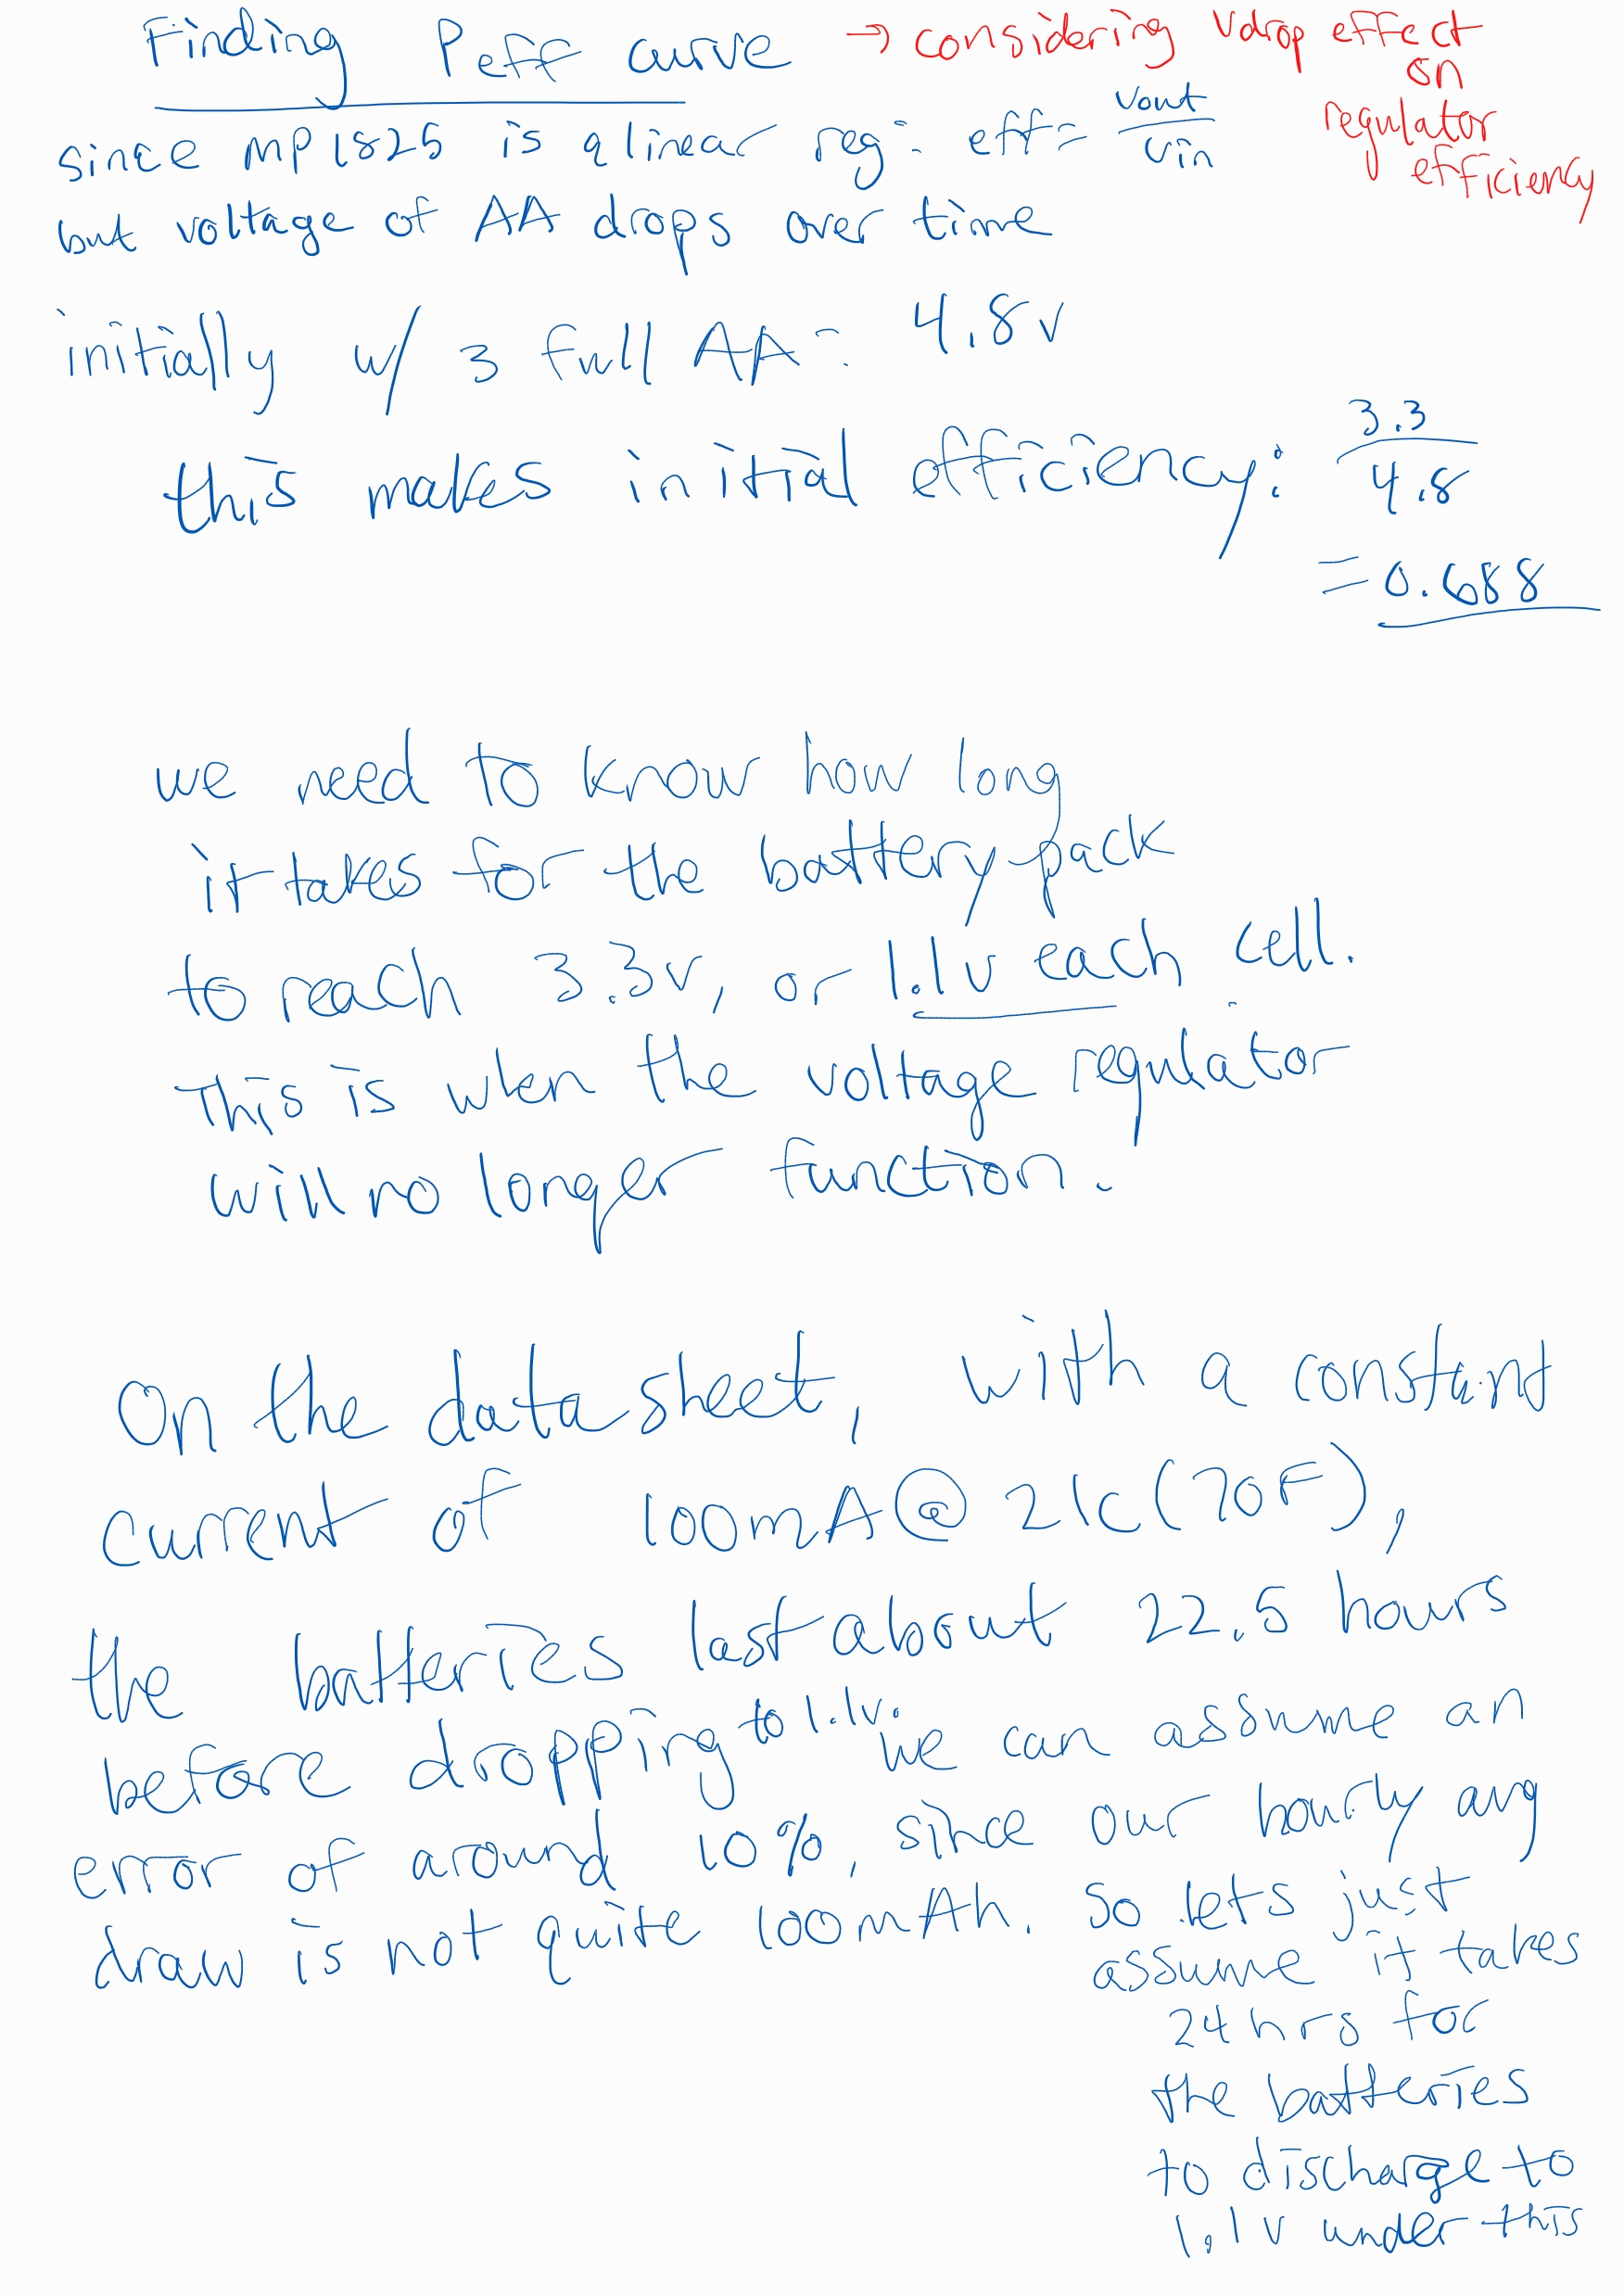 Finding Peff curve → considering Vdrop effect
on
regulator
efficiency
since MP1825 is a linear reg: eff = Vout/Vin
but voltage of AA drops over time
initially w/ 3 full AA = 4.8v
this makes initial efficiency: 3.3/4.8
= 0.688
we need to know how long
it takes for the battery pack
to reach 3.3v, or 1.1v each cell.
This is when the voltage regulator
will no longer function.
On the datasheet, with a constant
current of 100mA @ 21C (70F),
the batteries last about 22.5 hours
before dropping to 1.1v. we can assume an
error of around 10%, since our hourly avg
draw is not quite 100mAh. So lets just
assume it takes
24 hrs for
the batteries
to discharge to
1.1v under this